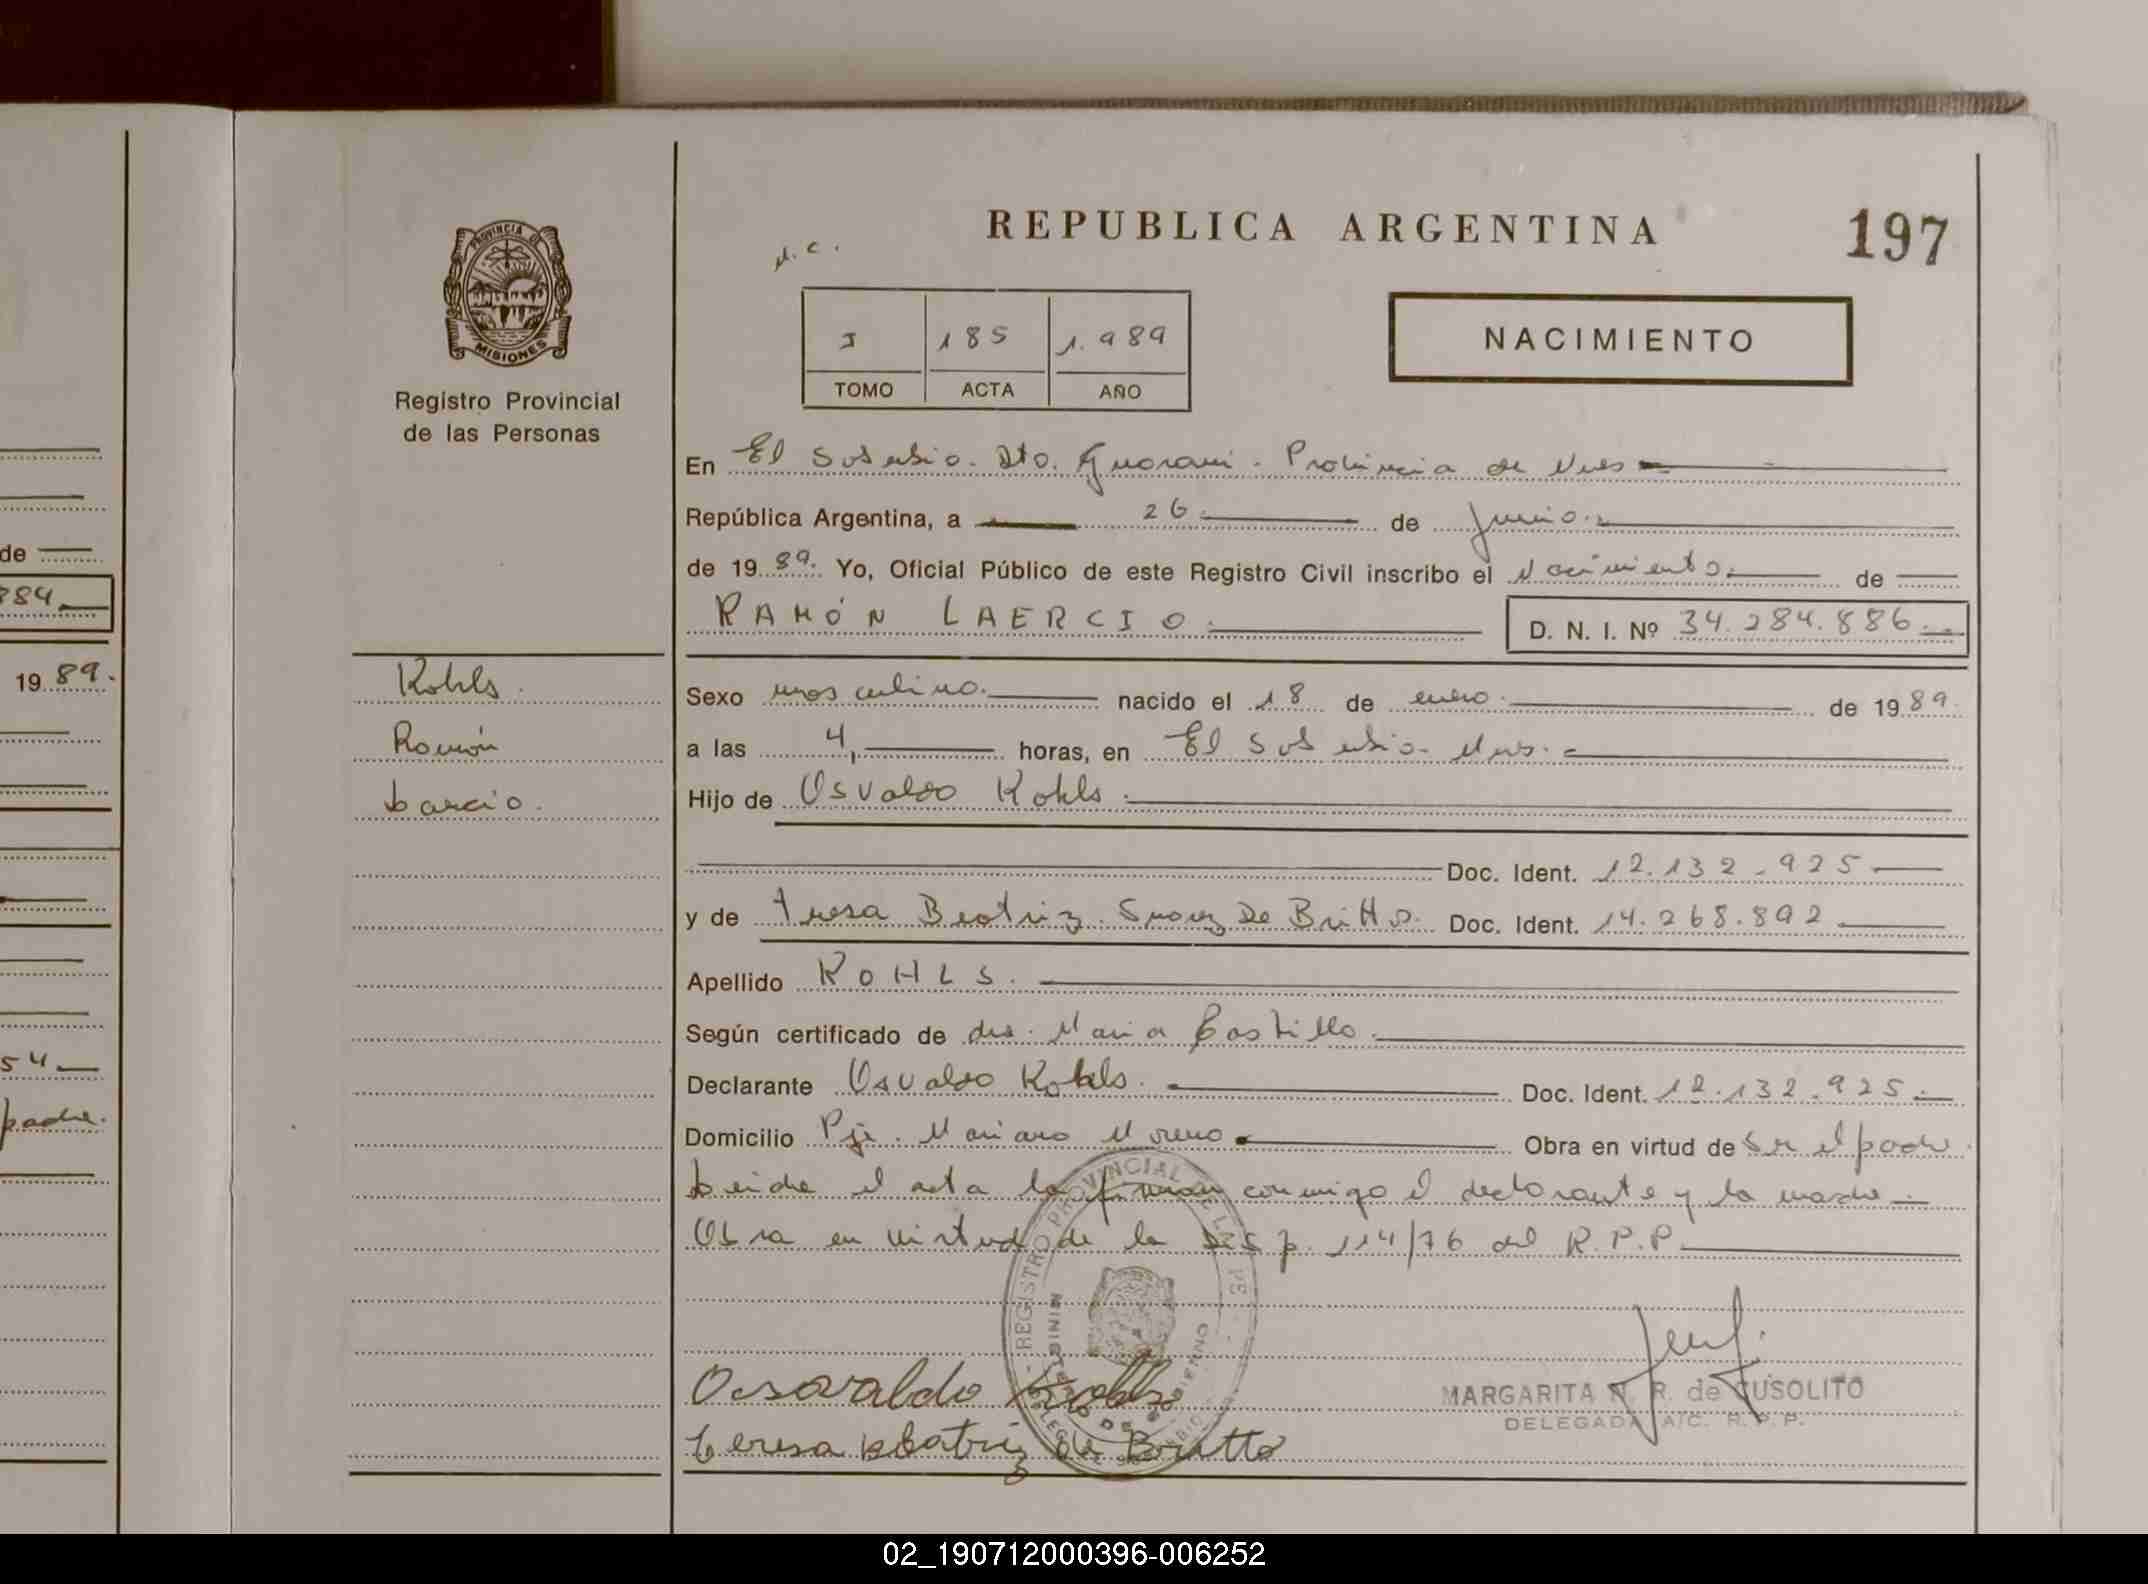 REPUBLICA ARGENTINA
197
M.C.
PROVINCIA DE
MISIONES
I 185 1.989
TOMO ACTA AÑO
NACIMIENTO
Registro Provincial
de las Personas
En El Soberbio. Dto. Guarani. Provincia de Mnes
República Argentina, a 26 de junio.
de 1989. Yo, Oficial Público de este Registro Civil inscribo el Nacimiento. de
RAMÓN LAERCIO.
D. N. I. Nº 34.284.886.
Kohls.
Ramón
Laercio.
Sexo masculino. nacido el 18 de enero. de 1989.
a las 4, horas, en El Soberbio. Mnes.
Hijo de Osvaldo Kohls.
Doc. Ident. 12.132.925
y de Teresa Beatriz Suarez De Britto. Doc. Ident. 14.268.892
Apellido KOHLS.
Según certificado de dra. Maria Castillo.
Declarante Osvaldo Kohls. Doc. Ident. 12.132.925.
Domicilio Pje. Mariano Moreno Obra en virtud de ser el padre.
Leida el acta la firman conmigo el declarante y la madre
Obra en virtud de la Disp. 114/76 del R.P.P.
REGISTRO PROVINCIAL DE LAS PE
MINISTERIO DE GOBIERNO
Osvaldo Kohls
Teresa Beatriz de Britto
MARGARITA N. R. de CUSOLITO
DELEGADA A/C. R.P.P.
de
884
1989.
54
padre.
02_190712000396-006252